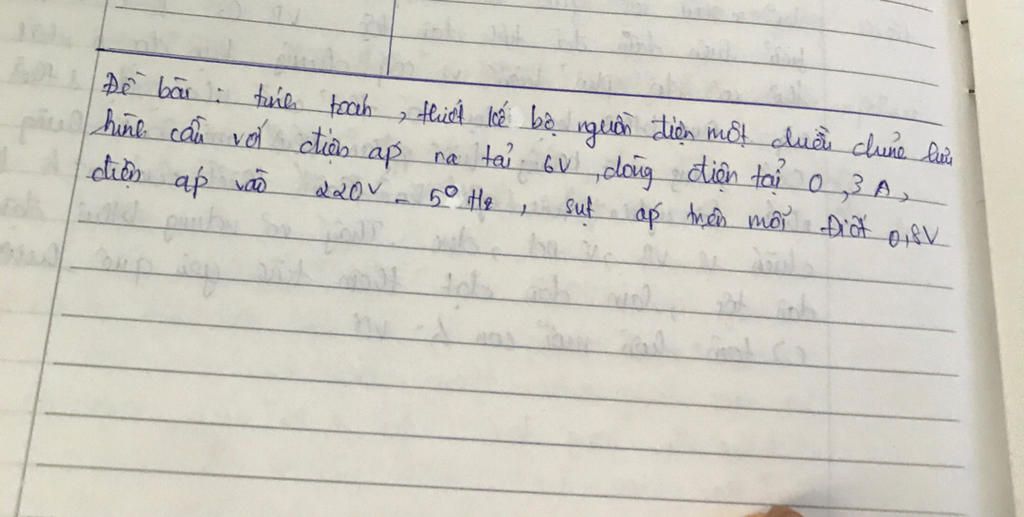 Đề bài : tính toán , thiết kế bộ nguồn điện một chiều chỉnh lưu
hình cầu với điện áp ra tải 6V , dòng điện tải 0,3A,
điện áp vào 220V - 50 Hz , sụt áp trên mỗi Điốt 0,8V